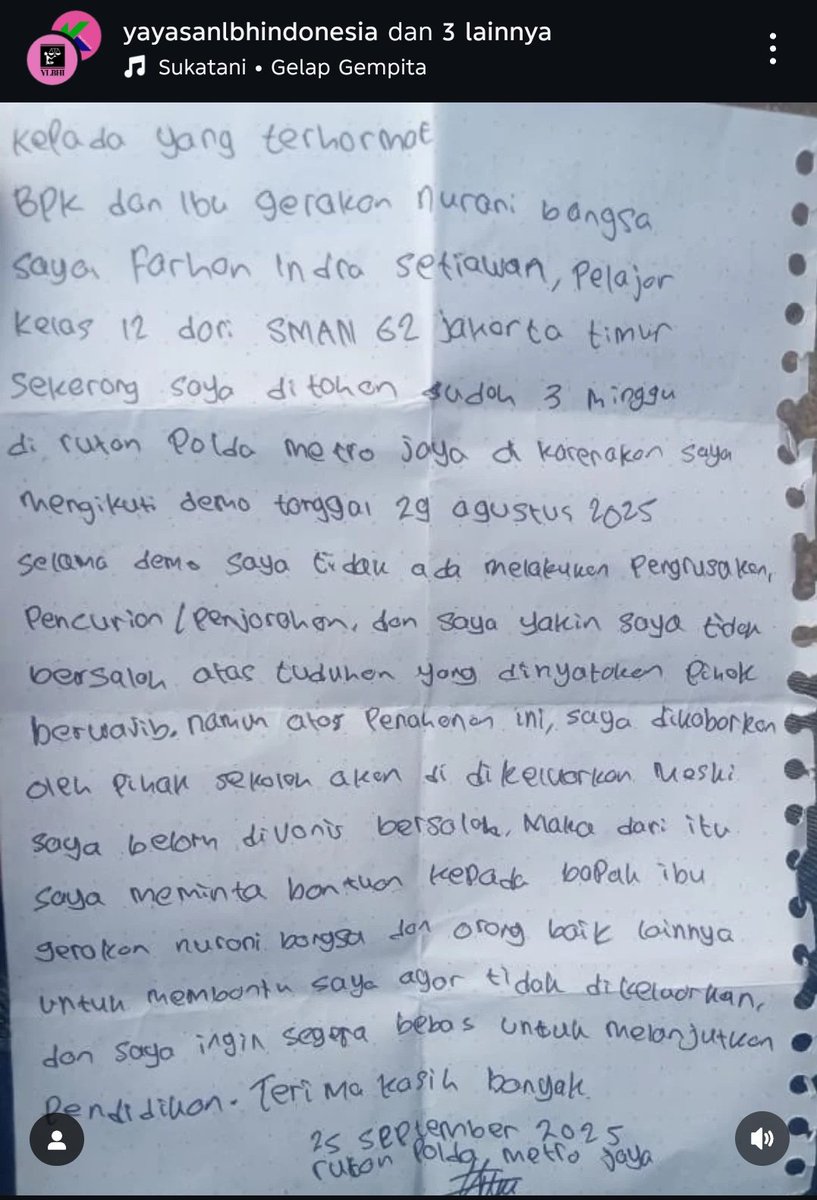 yayasanlbhindonesia dan 3 lainnya
Sukatani • Gelap Gempita
YLBHI
Kepada yang terhormat
BPK dan Ibu gerakan nurani bangsa
saya Farhan Indra setiawan, Pelajar
Kelas 12 dari SMAN 62 jakarta timur
Sekarang saya ditahan sudah 3 Minggu
di rutan Polda metro jaya di karenakan saya
Mengikuti demo tanggal 29 agustus 2025
selama demo saya tidak ada melakukan Pengrusakan,
Pencurian / Penjarahan, dan saya yakin saya tidak
bersalah atas tuduhan yang dinyatakan Pihak
berwajib. namun atas Penahanan ini, saya dikabarkan
oleh Pihak sekolah akan di dikeluarkan Meski
saya belom divonis bersalah, Maka dari itu
saya meminta bantuan kepada bapak ibu
gerakan nurani bangsa dan orang baik lainnya
untuk membantu saya agar tidak dikeluarkan,
dan saya ingin segera bebas untuk melanjutkan
Pendidikan. Terima kasih banyak
25 September 2025
rutan Polda, metro jaya